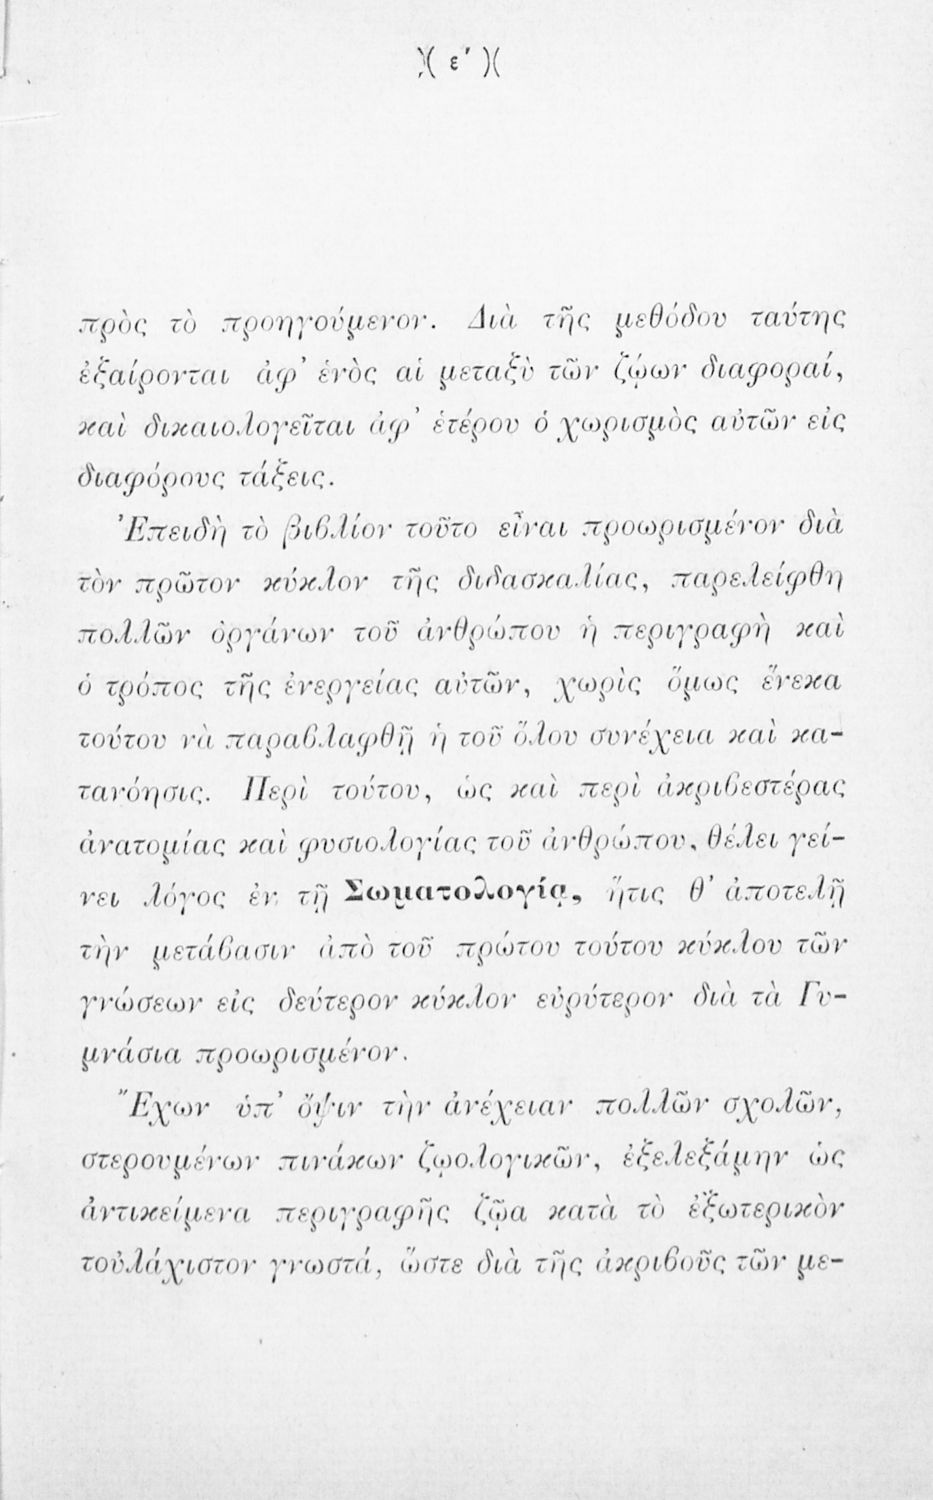 )( ε' )(
πρὸς τὸ προηγούμενον. Διὰ τῆς μεθόδου ταύτης
ἐξαίρονται ἀφ' ἑνὸς αἱ μεταξὺ τῶν ζῴων διαφοραί,
καὶ δικαιολογεῖται ἀφ' ἑτέρου ὁ χωρισμὸς αὐτῶν εἰς
διαφόρους τάξεις.
Ἐπειδὴ τὸ βιβλίον τοῦτο εἶναι προωρισμένον διὰ
τὸν πρῶτον κύκλον τῆς διδασκαλίας, παρελείφθη
πολλῶν ὀργάνων τοῦ ἀνθρώπου ἡ περιγραφὴ καὶ
ὁ τρόπος τῆς ἐνεργείας αὐτῶν, χωρὶς ὅμως ἕνεκα
τούτου νὰ παραβλαφθῇ ἡ τοῦ ὅλου συνέχεια καὶ κα-
τανόησις. Περὶ τούτου, ὡς καὶ περὶ ἀκριβεστέρας
ἀνατομίας καὶ φυσιολογίας τοῦ ἀνθρώπου, θέλει γεί-
νει λόγος ἐν τῇ Σωματολογίᾳ, ἥτις θ' ἀποτελῇ
τὴν μετάβασιν ἀπὸ τοῦ πρώτου τούτου κύκλου τῶν
γνώσεων εἰς δεύτερον κύκλον εὐρύτερον διὰ τὰ Γυ-
μνάσια προωρισμένον.
Ἔχων ὑπ' ὄψιν τὴν ἀνέχειαν πολλῶν σχολῶν,
στερουμένων πινάκων ζῳολογικῶν, ἐξελεξάμην ὡς
ἀντικείμενα περιγραφῆς ζῷα κατὰ τὸ ἐξωτερικὸν
τοὐλάχιστον γνωστά, ὥστε διὰ τῆς ἀκριβοῦς τῶν με-